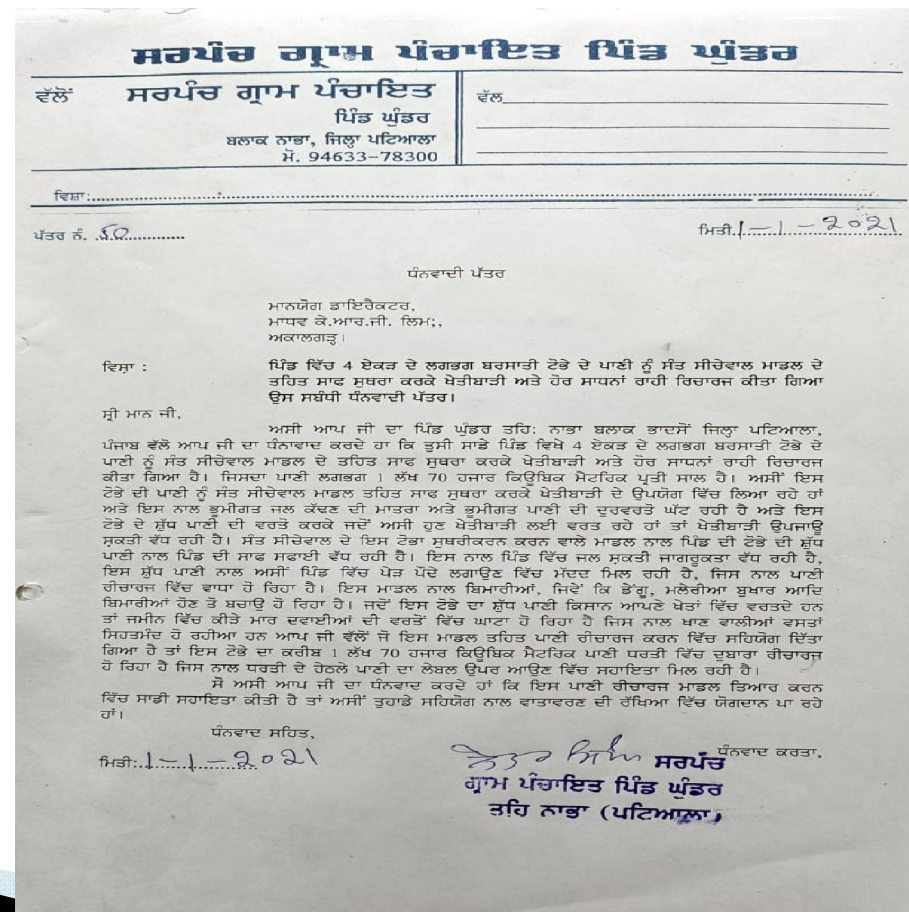 ਸਰਪੰਚ ਗ੍ਰਾਮ ਪੰਚਾਇਤ ਪਿੰਡ ਘੁੰਡਰ
ਵੱਲੋਂ ਸਰਪੰਚ ਗ੍ਰਾਮ ਪੰਚਾਇਤ
ਪਿੰਡ ਘੁੰਡਰ
ਬਲਾਕ ਨਾਭਾ, ਜਿਲ੍ਹਾ ਪਟਿਆਲਾ
ਮੋ. 94633-78300
ਵੱਲ
ਵਿਸ਼ਾ:
ਪੱਤਰ ਨੰ. 50
ਮਿਤੀ. 1-1-2021
ਧੰਨਵਾਦੀ ਪੱਤਰ
ਮਾਨਯੋਗ ਡਾਇਰੈਕਟਰ,
ਮਾਧਵ ਕੇ.ਆਰ.ਜੀ. ਲਿਮ:,
ਅਕਾਲਗੜ੍ਹ।
ਵਿਸ਼ਾ : ਪਿੰਡ ਵਿੱਚ 4 ਏਕੜ ਦੇ ਲਗਭਗ ਬਰਸਾਤੀ ਟੋਭੇ ਦੇ ਪਾਣੀ ਨੂੰ ਸੰਤ ਸੀਚੇਵਾਲ ਮਾਡਲ ਦੇ
ਤਹਿਤ ਸਾਫ ਸੁਥਰਾ ਕਰਕੇ ਖੇਤੀਬਾੜੀ ਅਤੇ ਹੋਰ ਸਾਧਨਾਂ ਰਾਹੀ ਰਿਚਾਰਜ ਕੀਤਾ ਗਿਆ
ਉਸ ਸਬੰਧੀ ਧੰਨਵਾਦੀ ਪੱਤਰ।
ਸ੍ਰੀ ਮਾਨ ਜੀ,
ਅਸੀ ਆਪ ਜੀ ਦਾ ਪਿੰਡ ਘੁੰਡਰ ਤਹਿ: ਨਾਭਾ ਬਲਾਕ ਭਾਦਸੋਂ ਜਿਲ੍ਹਾ ਪਟਿਆਲਾ,
ਪੰਜਾਬ ਵੱਲੋ ਆਪ ਜੀ ਦਾ ਧੰਨਾਵਾਦ ਕਰਦੇ ਹਾ ਕਿ ਤੁਸੀ ਸਾਡੇ ਪਿੰਡ ਵਿਖੇ 4 ਏਕੜ ਦੇ ਲਗਭਗ ਬਰਸਾਤੀ ਟੋਭੇ ਦੇ
ਪਾਣੀ ਨੂੰ ਸੰਤ ਸੀਚੇਵਾਲ ਮਾਡਲ ਦੇ ਤਹਿਤ ਸਾਫ ਸੁਥਰਾ ਕਰਕੇ ਖੇਤੀਬਾੜੀ ਅਤੇ ਹੋਰ ਸਾਧਨਾਂ ਰਾਹੀ ਰਿਚਾਰਜ
ਕੀਤਾ ਗਿਆ ਹੈ। ਜਿਸਦਾ ਪਾਣੀ ਲਗਭਗ 1 ਲੱਖ 70 ਹਜਾਰ ਕਿਊਬਿਕ ਮੈਟਰਿਕ ਪ੍ਰਤੀ ਸਾਲ ਹੈ। ਅਸੀਂ ਇਸ
ਟੋਭੇ ਦੀ ਪਾਣੀ ਨੂੰ ਸੰਤ ਸੀਚੇਵਾਲ ਮਾਡਲ ਤਹਿਤ ਸਾਫ ਸੁਥਰਾ ਕਰਕੇ ਖੇਤੀਬਾੜੀ ਦੇ ਉਪਯੋਗ ਵਿੱਚ ਲਿਆ ਰਹੇ ਹਾਂ
ਅਤੇ ਇਸ ਨਾਲ ਭੂਮੀਗਤ ਜਲ ਕੱਢਣ ਦੀ ਮਾਤਰਾ ਅਤੇ ਭੂਮੀਗਤ ਪਾਣੀ ਦੀ ਦੁਰਵਰਤੋ ਘੱਟ ਰਹੀ ਹੈ ਅਤੇ ਇਸ
ਟੋਭੇ ਦੇ ਸ਼ੁੱਧ ਪਾਣੀ ਦੀ ਵਰਤੋ ਕਰਕੇ ਜਦੋਂ ਅਸੀ ਹੁਣ ਖੇਤੀਬਾੜੀ ਲਈ ਵਰਤ ਰਹੇ ਹਾਂ ਤਾਂ ਖੇਤੀਬਾੜੀ ਉਪਜਾਊ
ਸ਼ਕਤੀ ਵੱਧ ਰਹੀ ਹੈ। ਸੰਤ ਸੀਚੇਵਾਲ ਦੇ ਇਸ ਟੋਭਾ ਸੁਥਰੀਕਰਨ ਕਰਨ ਵਾਲੇ ਮਾਡਲ ਨਾਲ ਪਿੰਡ ਦੀ ਟੋਭੇ ਦੀ ਸ਼ੁੱਧ
ਪਾਣੀ ਨਾਲ ਪਿੰਡ ਦੀ ਸਾਫ ਸਫਾਈ ਵੱਧ ਰਹੀ ਹੈ। ਇਸ ਨਾਲ ਪਿੰਡ ਵਿੱਚ ਜਲ ਸ਼ਕਤੀ ਜਾਗਰੂਕਤਾ ਵੱਧ ਰਹੀ ਹੈ,
ਇਸ ਸ਼ੁੱਧ ਪਾਣੀ ਨਾਲ ਅਸੀਂ ਪਿੰਡ ਵਿੱਚ ਪੇੜ ਪੌਦੇ ਲਗਾਉਣ ਵਿੱਚ ਮੱਦਦ ਮਿਲ ਰਹੀ ਹੈ, ਜਿਸ ਨਾਲ ਪਾਣੀ
ਰੀਚਾਰਜ ਵਿੱਚ ਵਾਧਾ ਹੋ ਰਿਹਾ ਹੈ। ਇਸ ਮਾਡਲ ਨਾਲ ਬਿਮਾਰੀਆਂ, ਜਿਵੇਂ ਕਿ ਡੇਂਗੂ, ਮਲੇਰੀਆ ਬੁਖਾਰ ਆਦਿ
ਬਿਮਾਰੀਆਂ ਹੋਣ ਤੋ ਬਚਾਉ ਹੋ ਰਿਹਾ ਹੈ। ਜਦੋਂ ਇਸ ਟੋਭੇ ਦਾ ਸ਼ੁੱਧ ਪਾਣੀ ਕਿਸਾਨ ਆਪਣੇ ਖੇਤਾਂ ਵਿੱਚ ਵਰਤਦੇ ਹਨ
ਤਾਂ ਜਮੀਨ ਵਿੱਚ ਕੀੜੇ ਮਾਰ ਦਵਾਈਆਂ ਦੀ ਵਰਤੋਂ ਵਿੱਚ ਘਾਟਾ ਹੋ ਰਿਹਾ ਹੈ ਜਿਸ ਨਾਲ ਖਾਣ ਵਾਲੀਆਂ ਵਸਤਾਂ
ਸਿਹਤਮੰਦ ਹੋ ਰਹੀਆ ਹਨ ਆਪ ਜੀ ਵੱਲੋਂ ਜੋ ਇਸ ਮਾਡਲ ਤਹਿਤ ਪਾਣੀ ਰੀਚਾਰਜ ਕਰਨ ਵਿੱਚ ਸਹਿਯੋਗ ਦਿੱਤਾ
ਗਿਆ ਹੈ ਤਾਂ ਇਸ ਟੋਭੇ ਦਾ ਕਰੀਬ 1 ਲੱਖ 70 ਹਜਾਰ ਕਿਊਬਿਕ ਮੈਟਰਿਕ ਪਾਣੀ ਧਰਤੀ ਵਿੱਚ ਦੁਬਾਰਾ ਰੀਚਾਰਜ
ਹੋ ਰਿਹਾ ਹੈ ਜਿਸ ਨਾਲ ਧਰਤੀ ਦੇ ਹੇਠਲੇ ਪਾਣੀ ਦਾ ਲੇਬਲ ਉਪਰ ਆਉਣ ਵਿੱਚ ਸਹਾਇਤਾ ਮਿਲ ਰਹੀ ਹੈ।
ਸੋ ਅਸੀ ਆਪ ਜੀ ਦਾ ਧੰਨਵਾਦ ਕਰਦੇ ਹਾਂ ਕਿ ਇਸ ਪਾਣੀ ਰੀਚਾਰਜ ਮਾਡਲ ਤਿਆਰ ਕਰਨ
ਵਿੱਚ ਸਾਡੀ ਸਹਾਇਤਾ ਕੀਤੀ ਹੈ ਤਾਂ ਅਸੀਂ ਤੁਹਾਡੇ ਸਹਿਯੋਗ ਨਾਲ ਵਾਤਾਵਰਣ ਦੀ ਰੱਖਿਆ ਵਿੱਚ ਯੋਗਦਾਨ ਪਾ ਰਹੇ
ਹਾਂ।
ਧੰਨਵਾਦ ਸਹਿਤ,
ਧੰਨਵਾਦ ਕਰਤਾ,
ਮਿਤੀ: 1-1-2021
ਸਰਪੰਚ
ਗ੍ਰਾਮ ਪੰਚਾਇਤ ਪਿੰਡ ਘੁੰਡਰ
ਤਹਿ ਨਾਭਾ (ਪਟਿਆਲਾ)